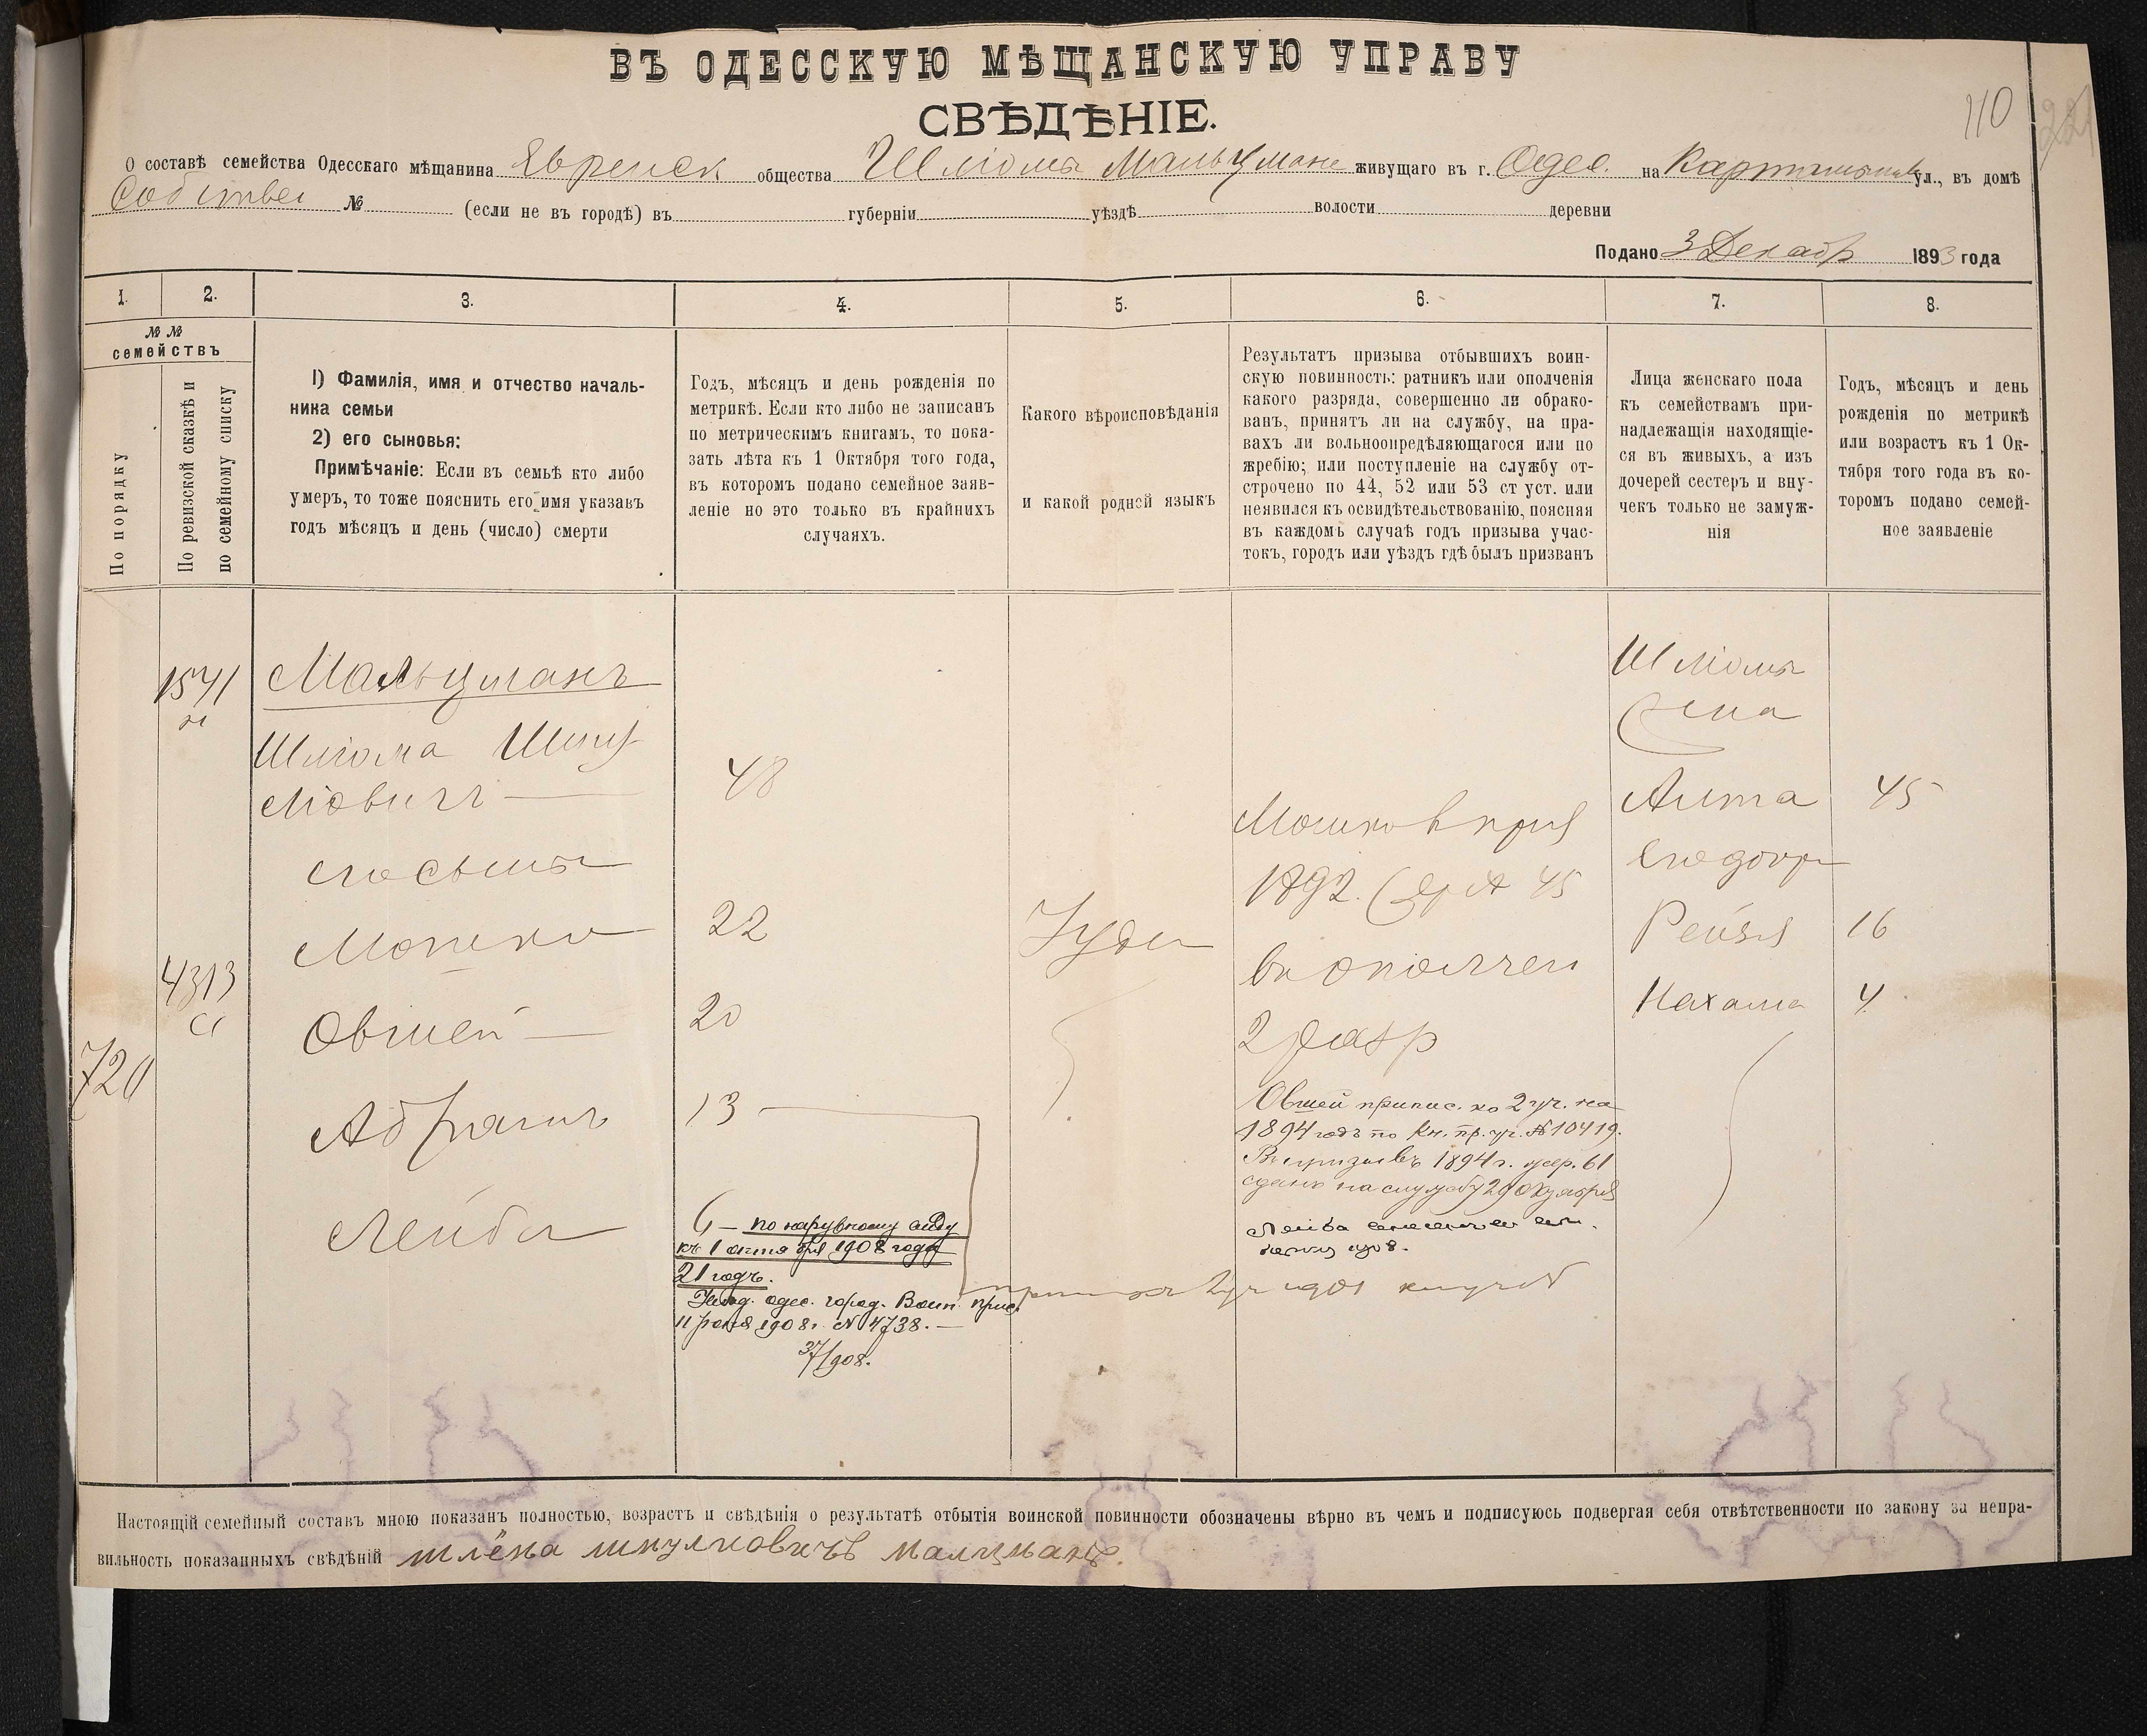 ВЪ ОДЕССКУЮ МѢЩАНСКУЮ УПРАВУ
СВѢДѢНІЕ.
110
О составѣ семейства Одесскаго мѣщанина Еврейск общества Шліома Мальцмана живущаго въ г. Одес. на ул., въ домѣ
Собствен № (если не въ городѣ) въ губерніи уѣздѣ волости деревни
Подано 3 Декабр 1893 года
1. 2. 3. 4. 5. 6. 7. 8.
№ №
семействъ
По порядку
По ревизской сказкѣ и
по семейному списку
1) Фамилія, имя и отчество началь-
ника семьи
2) его сыновья:
Примѣчаніе: Если въ семьѣ кто либо
умеръ, то тоже пояснить его имя указавъ
годъ мѣсяцъ и день (число) смерти
Годъ, мѣсяцъ и день рожденія по
метрикѣ. Если кто либо не записанъ
по метрическимъ книгамъ, то пока-
зать лѣта къ 1 Октября того года,
въ которомъ подано семейное заяв-
леніе но это только въ крайнихъ
случаяхъ.
Какого вѣроисповѣданія
и какой родной языкъ
Результатъ призыва отбывшихъ воин-
скую повинность: ратникъ или ополченія
какого разряда, совершенно ли обрако-
ванъ, принятъ ли на службу, на пра-
вахъ ли вольноопредѣляющагося или по
жребію; или поступленіе на службу от-
строчено по 44, 52 или 53 ст уст. или
неявился къ освидѣтельствованію, поясняя
въ каждомъ случаѣ годъ призыва учас-
токъ, городъ или уѣздъ гдѣ былъ призванъ
Лица женскаго пола
къ семействамъ при-
надлежащія находящіе-
ся въ живыхъ, а изъ
дочерей сестеръ и вну-
чекъ только не замуж-
нія
Годъ, мѣсяцъ и день
рожденія по метрикѣ
или возрастъ къ 1 Ок-
тября того года въ ко-
торомъ подано семей-
ное заявленіе
1541
н
4313
с
720
Мальцманъ
Шліома Шму
ліовичъ
его сыны
Мошко
Овшей
Абрамъ
Лейба
48
22
20
13
6 — по наружному виду
къ 1 октября 1908 года
21 годъ.
одес. город. Воин. прис.
1908г. № 4738. —
Іуде
Мошко в приз
1892. 45
въ ополчен
2 разр
Овшей припис. ко 2 уч. на
1894 годъ по Кн. пр. уч. № 10419.
Въ призывъ 1894 г. жер. 61
сданъ на службу 29 Октября
Лейба
2 уч 1901
Шліомы
жена
Алта
его дочер
Рейзя
Нахама
45
16
4
Настоящій семейный составъ мною показанъ полностью, возрастъ и свѣдѣнія о результатѣ отбытія воинской повинности обозначены вѣрно въ чемъ и подписуюсь подвергая себя отвѣтственности по закону за непра-
вильность показанныхъ свѣдѣній шлёма шмулиовичъ малцманъ.